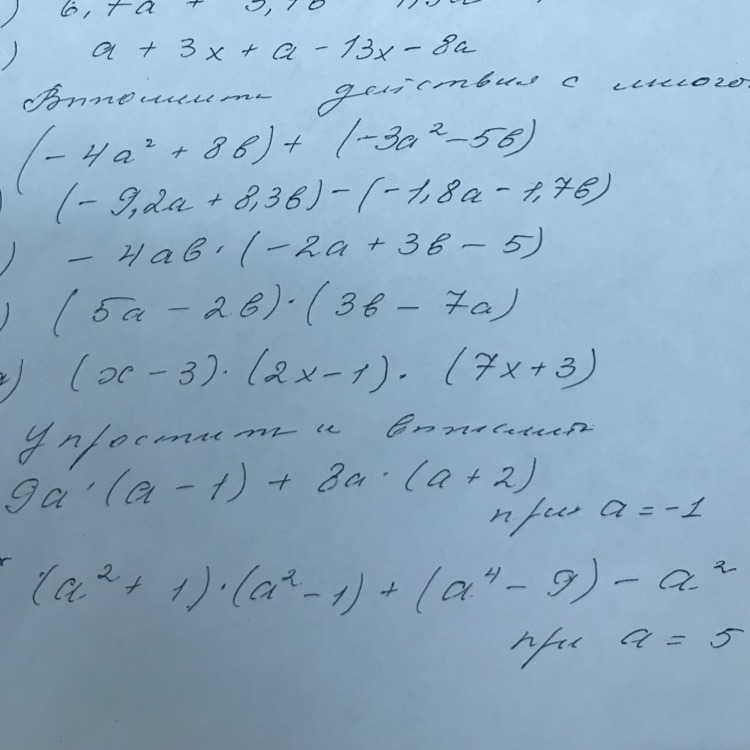 ) 6,7a + 3,7в
) a + 3x + a - 13x - 8a
Выполнить действия с много
(-4a² + 8в) + (-3a² - 5в)
) (-9,2a + 8,3в) - (-1,8a - 1,7в)
) -4aв · (-2a + 3в - 5)
) (5a - 2в) · (3в - 7a)
) (x - 3) · (2x - 1) · (7x + 3)
Упростить и вычислить
9a · (a - 1) + 3a · (a + 2)
при a = -1
* (a² + 1) · (a² - 1) + (a⁴ - 9) - a²
при a = 5